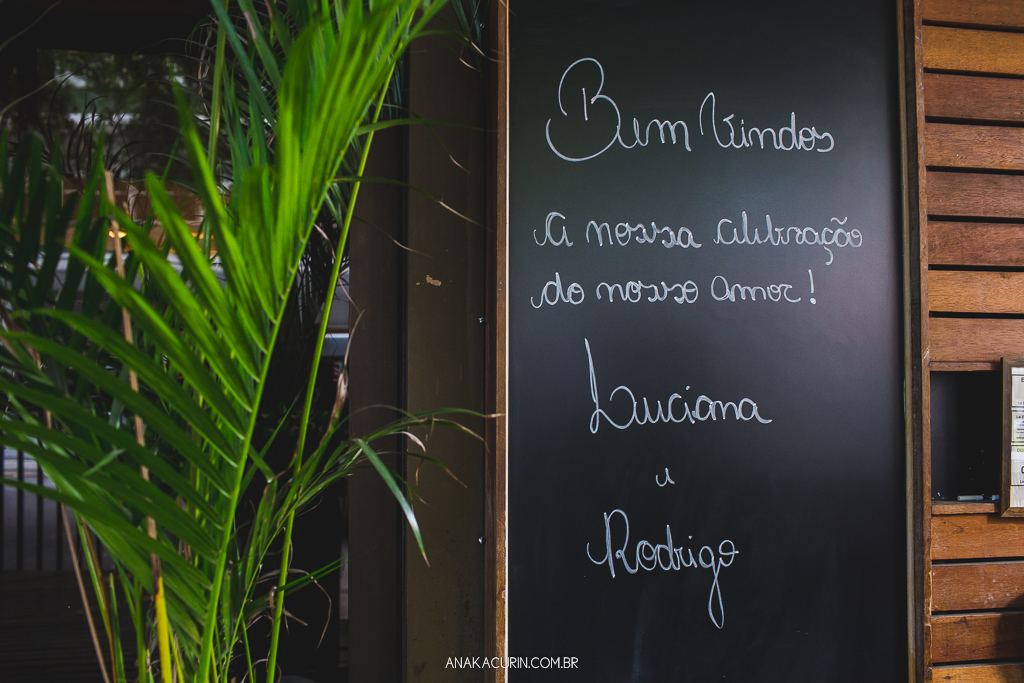 Bem Vindos
A nossa celebração
do nosso amor!
Luciana
e
Rodrigo
ANAKACURIN.COM.BR